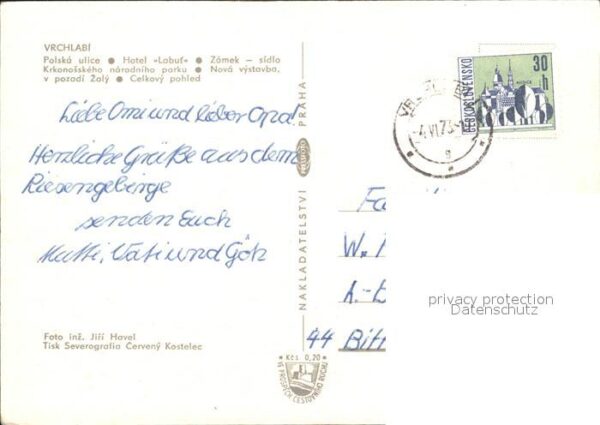 VRCHLABÍ
Polská ulice ● Hotel »Labuť« ● Zámek — sídlo
Krkonošského národního parku ● Nová výstavba,
v pozadí Žalý ● Celkový pohled
Liebe Omi und lieber Opa!
Herzliche Grüße aus dem
Riesengebirge
senden Euch
Mutti, Vati und Götz
Foto inž. Jiří Havel
Tisk Severografia Červený Kostelec
NAKLADATELSTVÍ PRAHA
Kčs 0,20
VE PROSPĚCH CESTOVNÍHO RUCHU
ČESKOSLOVENSKO
30 h
-4.VI.73
Fa
W.
A.-
44 Bitt
privacy protection
Datenschutz